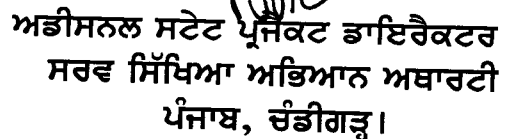 ਅਡੀਸਨਲ ਸਟੇਟ ਪ੍ਰਜੈਕਟ ਡਾਇਰੈਕਟਰ
ਸਰਵ ਸਿੱਖਿਆ ਅਭਿਆਨ ਅਥਾਰਟੀ
ਪੰਜਾਬ, ਚੰਡੀਗੜ੍ਹ।